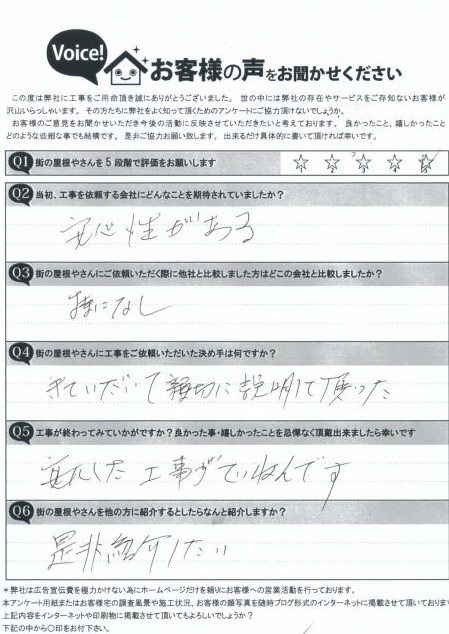 Voice!
お客様の声をお聞かせください
この度は弊社に工事をご用命頂き誠にありがとうございました。世の中には弊社の存在やサービスをご存知ないお客様が
沢山いらっしゃいます。その方たちに弊社をよく知って頂くためのアンケートにご協力頂けないでしょうか。
お客様のご意見をお聞かせいただき今後の活動に反映させていただきたいと考えております。良かったこと、嬉しかったこと
どのような些細な事でも結構です。是非ご協力お願い致します。出来るだけ具体的に書いて頂ければ幸いです。
Q1 街の屋根やさんを5段階で評価をお願いします
1 2 3 4 5
Q2 当初、工事を依頼する会社にどんなことを期待されていましたか？
安心性がある
Q3 街の屋根やさんにご依頼いただく際に他社と比較しました方はどこの会社と比較しましたか？
特になし
Q4 街の屋根やさんに工事をご依頼いただいた決め手は何ですか？
きていただいて親切に説明して頂った
Q5 工事が終わってみていかがですか？良かった事・嬉しかったことを忌憚なく頂戴出来ましたら幸いです
した工事がていねんです
Q6 街の屋根やさんを他の方に紹介するとしたらなんと紹介しますか？
是非紹介したい
＊弊社は広告宣伝費を極力かけない為にホームページだけを頼りにお客様への営業活動を行っております。
本アンケート用紙またはお客様宅の調査風景や施工状況、お客様の顔写真を随時ブログ形式のインターネットに掲載させて頂いておりま
上記内容をインターネットや印刷物に掲載させて頂いてもよろしいでしょうか？
下記の中から○印をお付下さい。